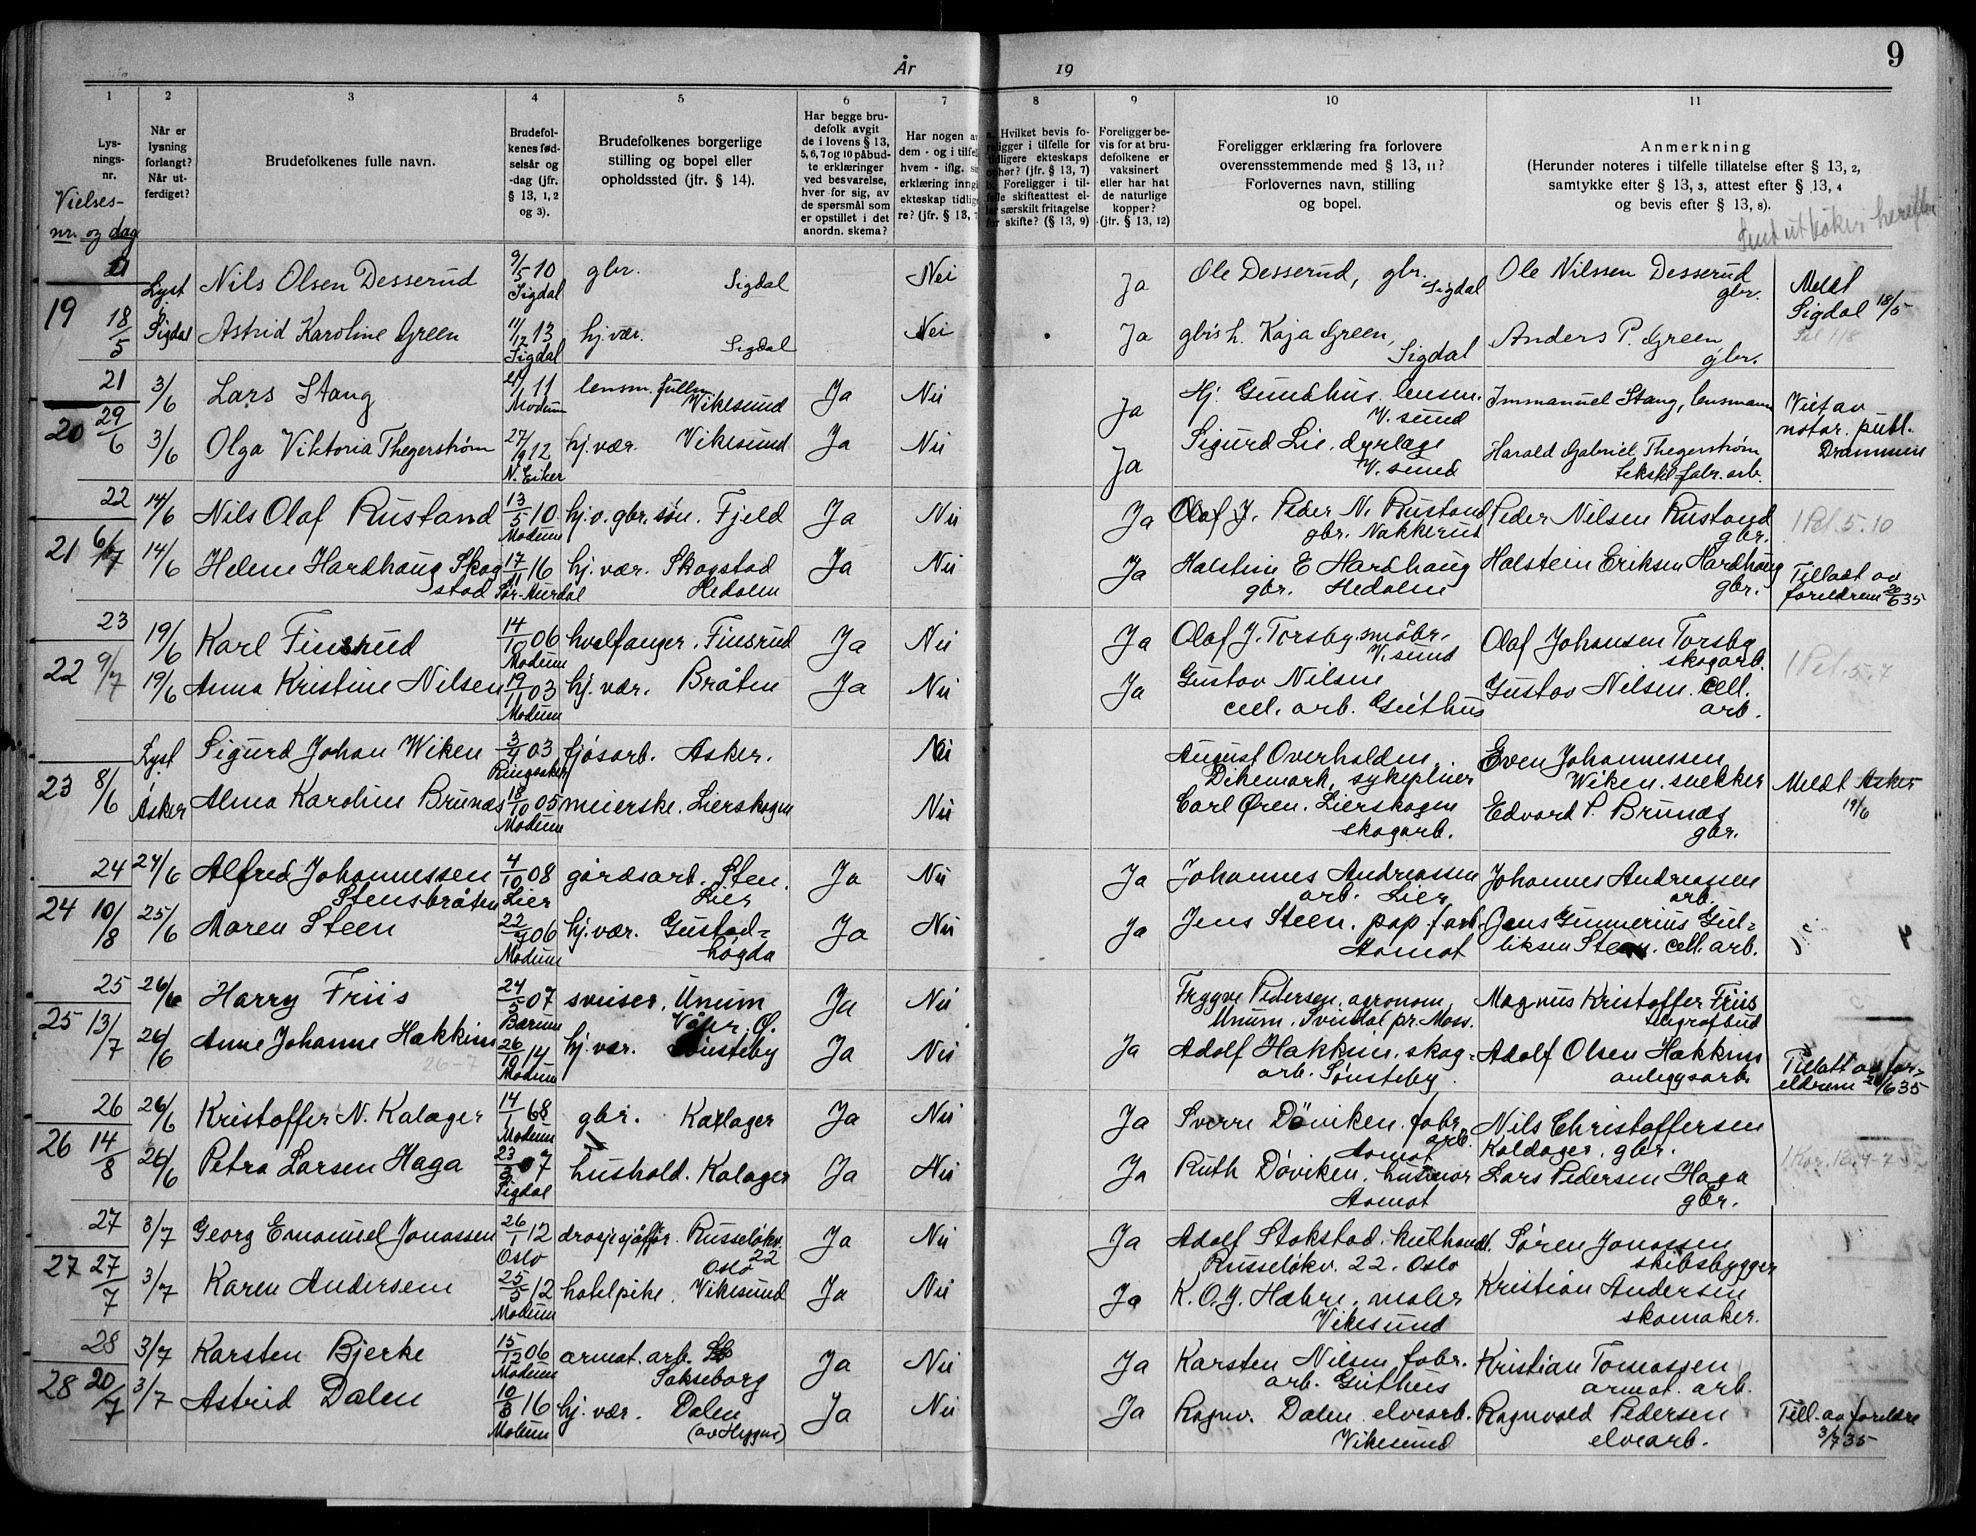 År 19
9
1 2 3 4 5 6 7 8 9 10 11
Lys-
nings-
nr.
Vielses-
nr. og dag
Når er
lysning
forlangt?
Når ut-
ferdiget?
Brudefolkenes fulle navn.
Brudefol-
kenes fød-
selsår og
-dag (jfr.
§ 13, 1, 2
og 3).
Brudefolkenes borgerlige
stilling og bopel eller
opholdssted (jfr. § 14).
Har begge bru-
defolk avgit
de i lovens § 13,
5, 6, 7 og 10 påbud-
te erklæringer
ved besvarelse,
hver for sig, av
de spørsmål som
er opstillet i det
anordn. skema?
Har nogen a
dem - og i tilfel
hvem - iflg. s
erklæring inng
ekteskap tidlig
re? (jfr. § 13, 7
a. Hvilket bevis fo-
religger i tilfelle for
tidligere ekteskaps
ophør? (jfr. § 13, 7)
b. Foreligger i til-
felle skifteattest el-
ler særskilt fritagelse
for skifte? (§ 13, 9)
Foreligger be-
vis for at bru-
defolkene er
vaksinert
eller har hat
de naturlige
kopper?
(jfr. § 13, 12)
Foreligger erklæring fra forlovere
overensstemmende med § 13, 11?
Forlovernes navn, stilling
og bopel.
Anmerkning
(Herunder noteres i tilfelle tillatelse efter § 13, 2,
samtykke efter § 13, 3, attest efter § 13, 4
og bevis efter § 13, 8).
19 18/5 Lyst i Sigdal
Nils Olsen Desserud 9/5 10 Sigdal gbr. Sigdal Nei Ja Ole Desserud, gbr. Sigdal Ole Nilssen Desserud gbr. Meldt Sigdal 18/5
Astrid Karoline Green 11/12 13 Sigdal hj. vær. Sigdal Nei Ja gbr's h. Kaja Green, Sigdal Anders P. Green, gbr.
21 3/6 Lars Stang 11 Modum lensm. fullm. Vikesund Ja Nei Ja Hj. Gundhus lensm. V. sund Immanuel Stang, lensmann Viet av notar. publ. Drammen
20 29/6 3/6 Olga Viktoria Thegerstrøm 27/9 12 N. Eiker hj. vær. Vikesund Ja Nei Ja Sigurd Lie, dyrlæge V. sund Harald Gabriel Thegerstrøm tekstil fabr. arb.
22 14/6 Nils Olaf Rustand 13/5 10 Modum hj. o. gbr. søn. Fjeld Ja Nei Ja Olaf J. Peder N. Rustand gbr. Nakkerud Peder Nilsen Rustand gbr.
21 6/7 14/6 Helene Hardhaug Skogstad 17/11 16 Sør-Aurdal hj. vær. Skogstad Hedalen Ja Nei Ja Halstein E Hardhaug gbr. Hedalen Halstein Eriksen Hardhaug gbr. Tillatt av foreldrene 20/6 35
23 19/6 Karl Finsrud 14/10 06 Modum hvalfanger. Finsrud Ja Nei Ja Olaf J. Torsby. småbr. V. sund Olaf Johansen Torsby skogarb.
22 9/7 19/6 Anna Kristine Nilsen 19/1 03 Modum hj. vær. Bråten Ja Nei Ja Gustav Nilsen cell. arb. Geithus Gustav Nilsen. Cell. arb.
23 8/6 Lyst i Asker
Sigurd Johan Wiken 3/4 03 Ringsaker fjøsarb. Asker. Nei August Overhalden, Dikemark, sykepleier Even Johannessen Wiken. snekker Meldt Asker 19/6
Alma Karoline Brunæs 18/10 05 Modum meierske. Lierskogen Nei Carl Øren. Lierskogen skogarb. Edvard P. Brunæs gbr.
24 24/6 Alfred Johannessen Stensbråten 4/10 08 Lier gårdsarb. Sten. Lier Ja Nei Ja Johannes Andreassen arb. Lier Johannes Andreassen arb.
24 10/8 25/6 Maren Steen 22/9 06 Modum hj. vær. Gustad-høgda Ja Nei Ja Jens Steen. pap. f. arb. Aamot Jens Gunnerius Gul-liksen Steen. cell. arb.
25 26/6 Harry Friis 24/5 07 Bærum sveiser. Unum Våler. Ø. Ja Nei Trygve Pedersen. agronom, Unum. Svindal pr. Moss. Magnus Kristoffer Friis telegrafbud
25 13/7 26/6 Anne Johanne Hækkins 26/10 14 Modum hj. vær. Sønsteby Ja Nei Ja Adolf Hækkins. skog-arb. Sønsteby. Adolf Olsen Hækkins anleggsarb. Tillatt av for-eldrene 26/6 35
26-7
26 26/6 Kristoffer N. Kalager 14/1 68 Modum gbr. Kallager Ja Nei Ja Sverre Døviken. fabr. arb. Aamot Nils Christoffersen Kaldager. gbr.
26 14/8 26/6 Petra Larsen Haga 23/3 07 Sigdal hushold. Kalager Ja Nei Ja Ruth Døviken. husmor Aamot Lars Pedersen Haga gbr.
27 3/7 Georg Emanuel Jonassen 26/1 12 Oslo drosjesjåfør. Russeløkv. 22 Oslo Ja Nei Ja Adolf Stokstad. kulhandl. Russeløkv. 22. Oslo Søren Jonassen skibsbygger
27 27/7 3/7 Karen Andersen 25/5 12 Modum hotelpike. Vikesund Ja Nei Ja K. O. J. Hæhre, maler Vikesund Kristian Andersen skomaker.
28 3/7 Karsten Bjerke 15/12 06 Modum armat. arb. Sakseborg Ja Nei Ja Karsten Nilsen fabr. arb. Geithus Kristian Tomassen armat. arb.
28 20/7 3/7 Astrid Dalen 10/8 16 Modum hj. vær. Dalen (av Heggen) Ja Nei Ja Ragnv. Dalen. elvearb. Vikesund Ragnvald Pedersen elvearb. Till. av foreldre 3/7 35